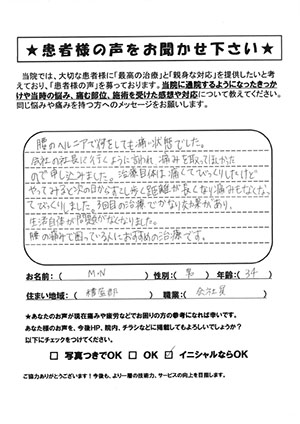 ★患者様の声をお聞かせ下さい★
当院では、大切な患者様に「最高の治療」と「親身な対応」を提供したいと考
えており、「患者様の声」を募っております。当院に通院するようになったきっか
けや当時の悩み、痛む部位、施術を受けた感想や対応について教えてください。
同じ悩みや痛みを持つ方へのメッセージをお願いします。
腰のヘルニアで何をしても痛い状態でした。
会社の社長に行くように言われ 痛みを取ってしまいたい
ので申し込みました。治療自体は痛くてびっくりしたけど
やってみると次の日からすこし歩く距離が長くなり痛みもなくなっ
てびっくりしました。3回目の治療でかなりな効果があり、
生活自体が問題がなくなりました。
腰の痛みで困っている人におすすめの治療です。
お名前：（ M・N ） 性別：（ 男 ） 年齢：（ 34 ）
住まい地域：（ 糟屋郡 ） 職業：（ 会社員 ）
★あなたのお声が現在痛みや疲労などでお困りの方の参考になれば幸いです。
あなた様のお声を、今後HP、院内、チラシなどに掲載してもよろしいでしょうか？
以下にチェックをつけてください。
□ 写真つきでOK □ OK ☑ イニシャルならOK
ご協力ありがとうございます！今後も、より一層の技術力、サービスの向上を目指します。